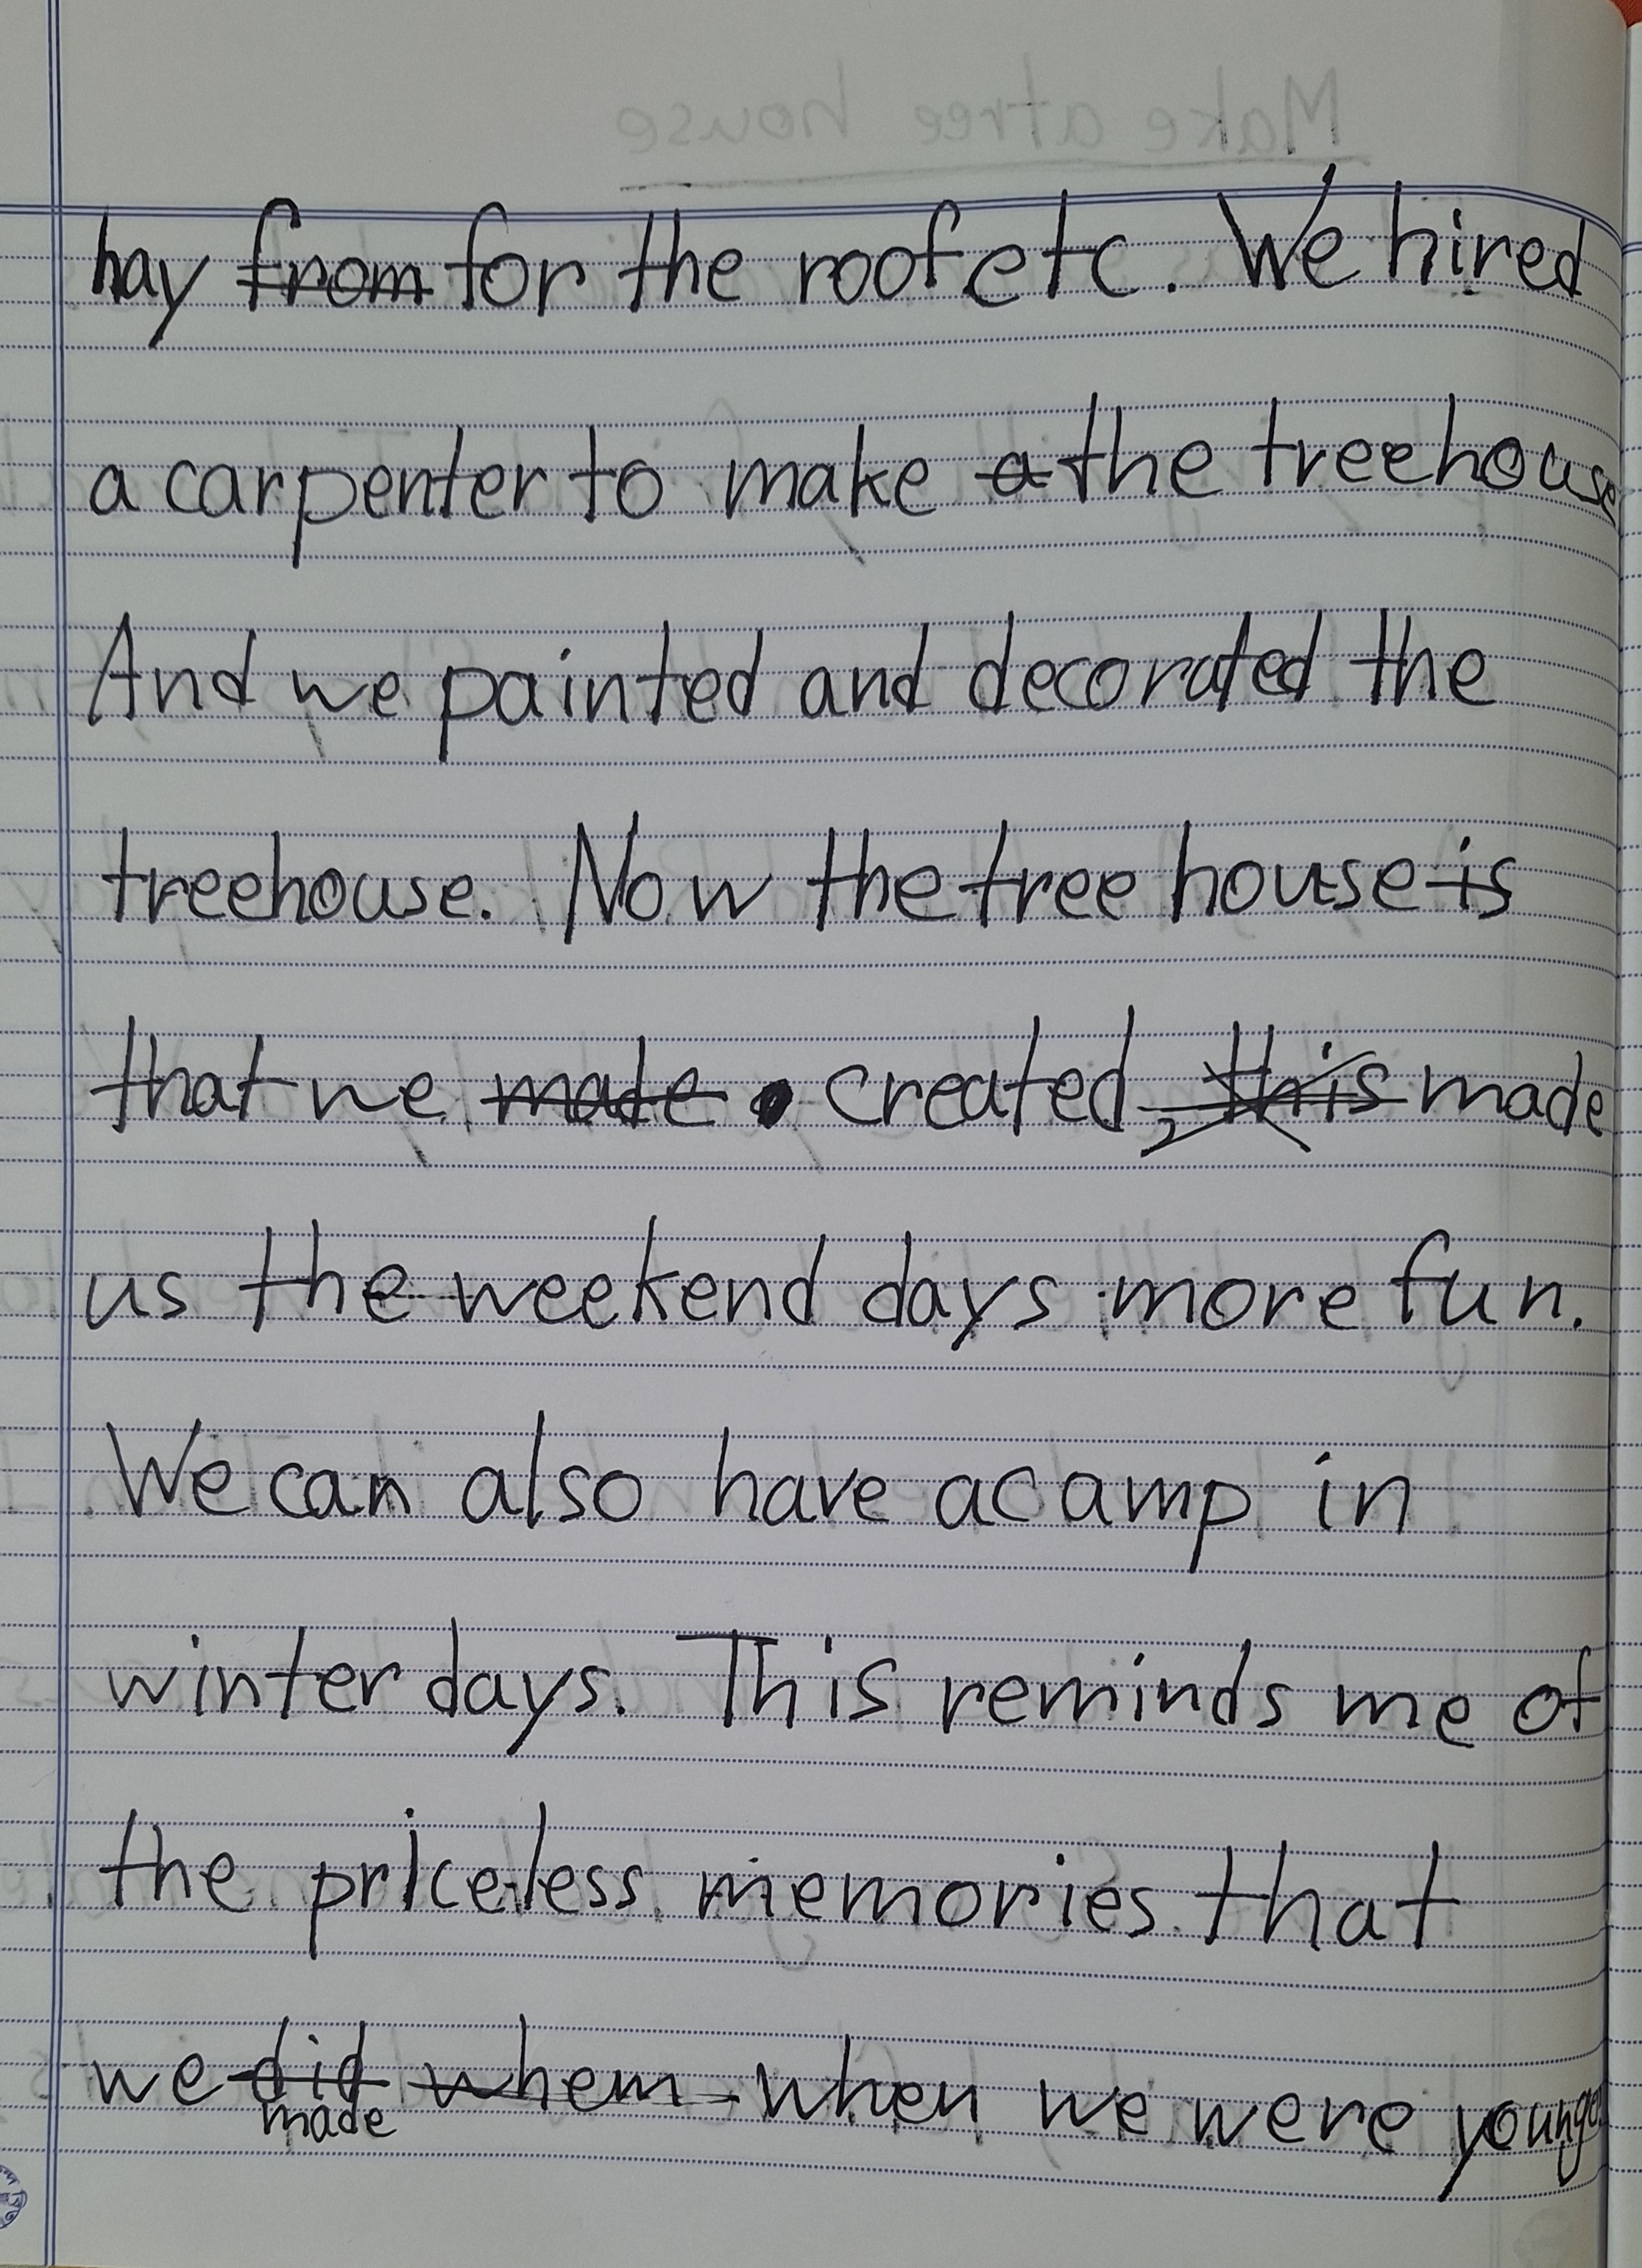 Make a tree house
hay from for the roof etc. We hired
a carpenter to make a the treehouse
And we painted and decorated the
treehouse. Now the tree house is
that we made created, this made
us the weekend days more fun.
We can also have a camp in
winter days. This reminds me of
the priceless memories that
we did whem when we were
made